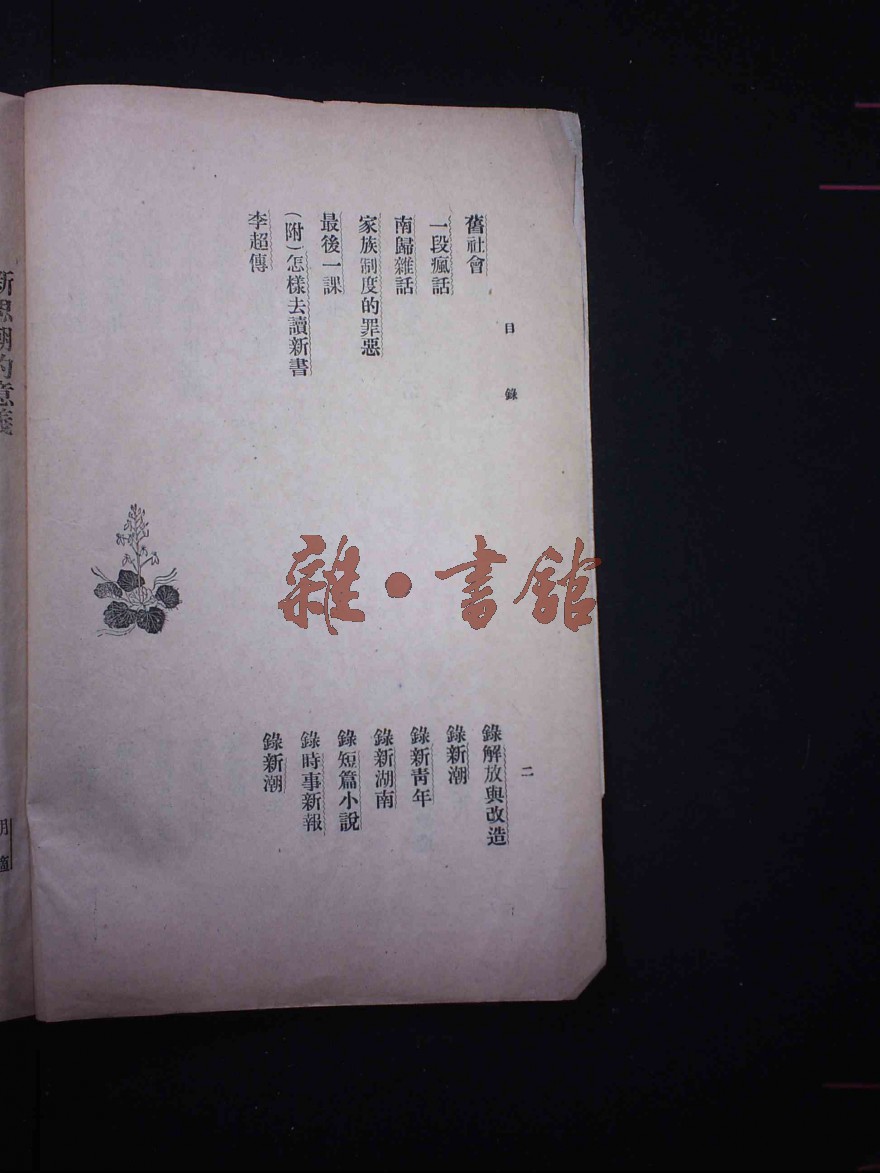 目錄
二
舊社會
錄解放與改造
一段瘋話
錄新潮
南歸雜話
錄新青年
家族制度的罪惡
錄新湖南
最後一課
錄短篇小說
(附)怎樣去讀新書
錄時事新報
李超傳
錄新潮
新思潮的意義
雜·書館